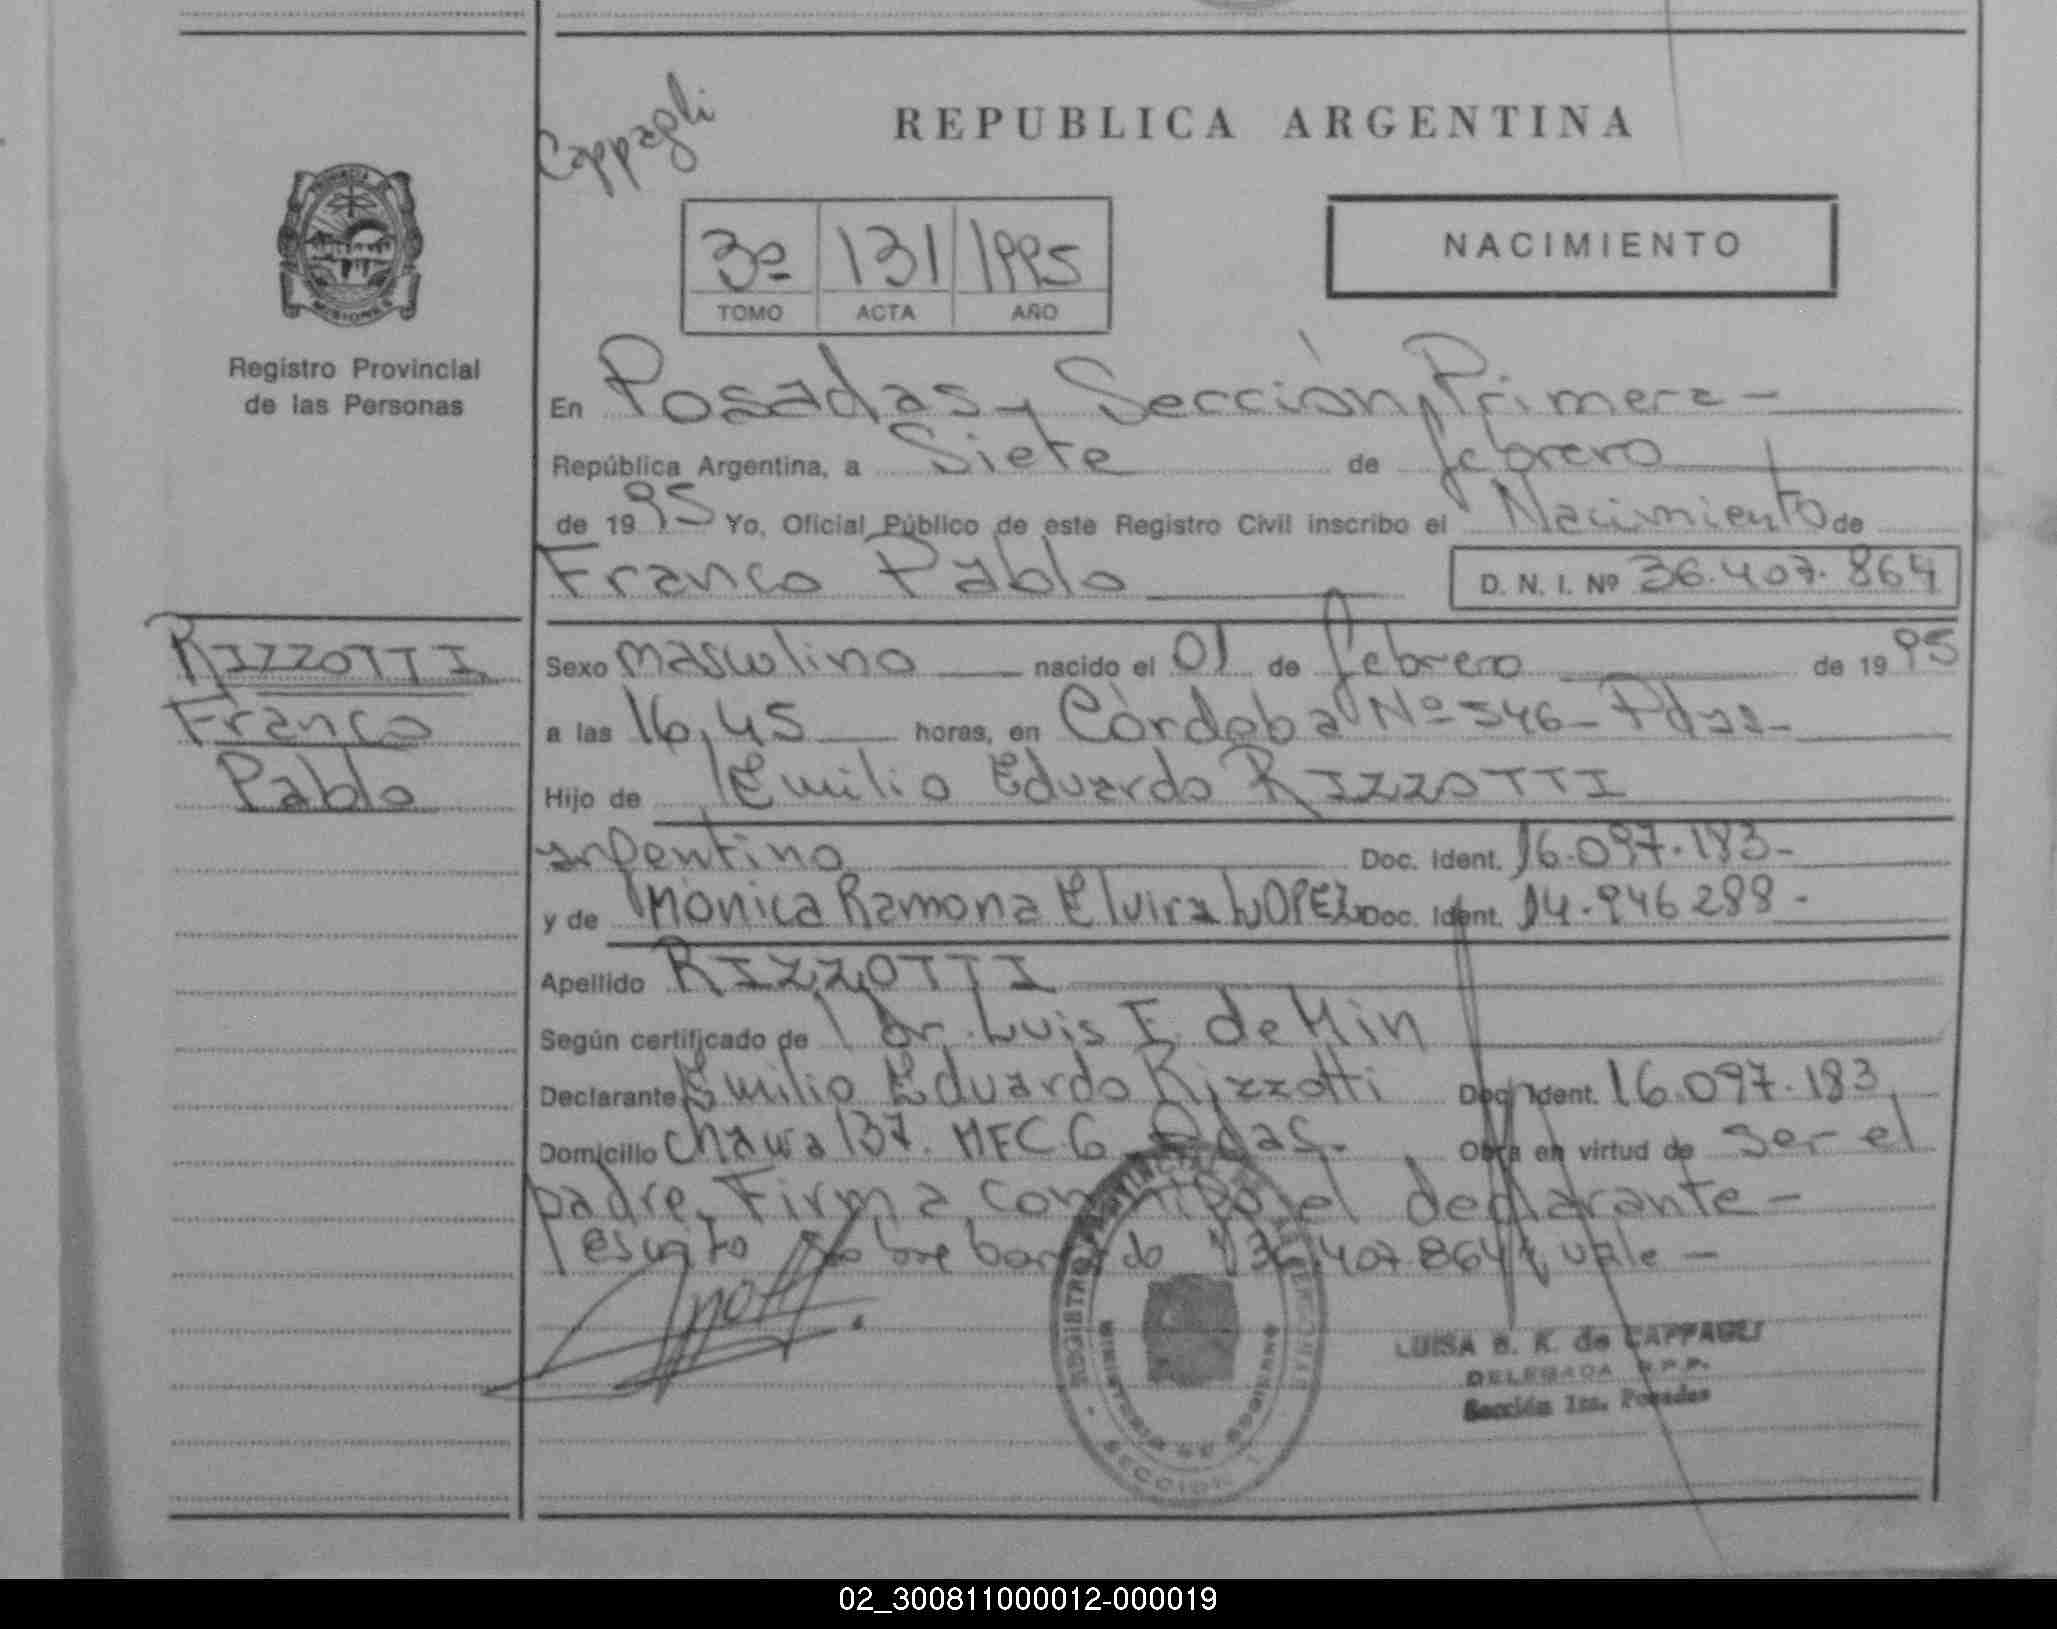 Cappagli
REPUBLICA ARGENTINA
PROVINCIA
MISIONES
Registro Provincial
de las Personas
3º 131 1995
TOMO ACTA AÑO
NACIMIENTO
En Posadas, Sección Primera -
República Argentina, a Siete de febrero
de 1995 Yo, Oficial Público de este Registro Civil inscribo el Nacimiento de
Franco Pablo D. N. I. Nº 36.407.864
RIZZOTTI
Franco
Pablo
Sexo masculino nacido el 01 de febrero de 1995
a las 16,45 horas, en Córdoba Nº 546 - Pdas -
Hijo de Emilio Eduardo RIZZOTTI
argentino Doc. Ident. 16.097.183 -
y de Mónica Ramona Elvira LOPEZ Doc. Ident. 14.946288 -
Apellido RIZZOTTI
Según certificado de Dr. Luis E. de Min
Declarante Emilio Eduardo Rizzotti Doc. Ident. 16.097.183
Domicilio 137. Pdas. - Obra en virtud de ser el
padre. Firma el declarante -
escrito sobre borrado 36.407.864 vale -
REGISTRO PROVINCIAL DE LAS PERSONAS
MINISTERIO DE GOBIERNO
SECCION 1
LUISA B. K. de CAPPAGLI
DELEGADA R.P.P.
Sección 1ra. Posadas
02_300811000012-000019